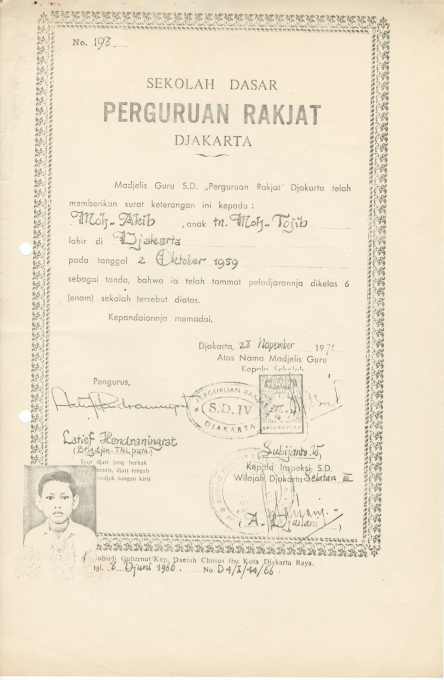 No. 198
SEKOLAH DASAR
PERGURUAN RAKJAT
DJAKARTA
Madjelis Guru S.D. „Perguruan Rakjat” Djakarta telah
memberikan surat keterangan ini kepada :
Moh. Akib, anak tn. Moh. Tojib
lahir di Djakarta
pada tanggal 2 Oktober 1959
sebagai tanda, bahwa ia telah tammat peladjarannja dikelas 6
(enam) sekolah tersebut diatas.
Kepandaiannja memadai.
Djakarta, 23 Nopember 197
Atas Nama Madjelis Guru
Kepala Sekolah
Pengurus,
PERGURUAN RAKJAT
S.D. IV
DJAKARTA
Latief Hendraningrat
(Brigdjen. TNI, purn)
Tiap djari jang berhak
tengah
tangan kiri)
(Subijanto
Kepala Inspeksi S.D.
Wilajah Djakarta Selatan III
(A. Djailani)
Subsidi Gubernur/Kep. Daerah Chusus Ibu Kota Djakarta Raya.
tgl. 6 Djuni 1966. No D4/I/44/66